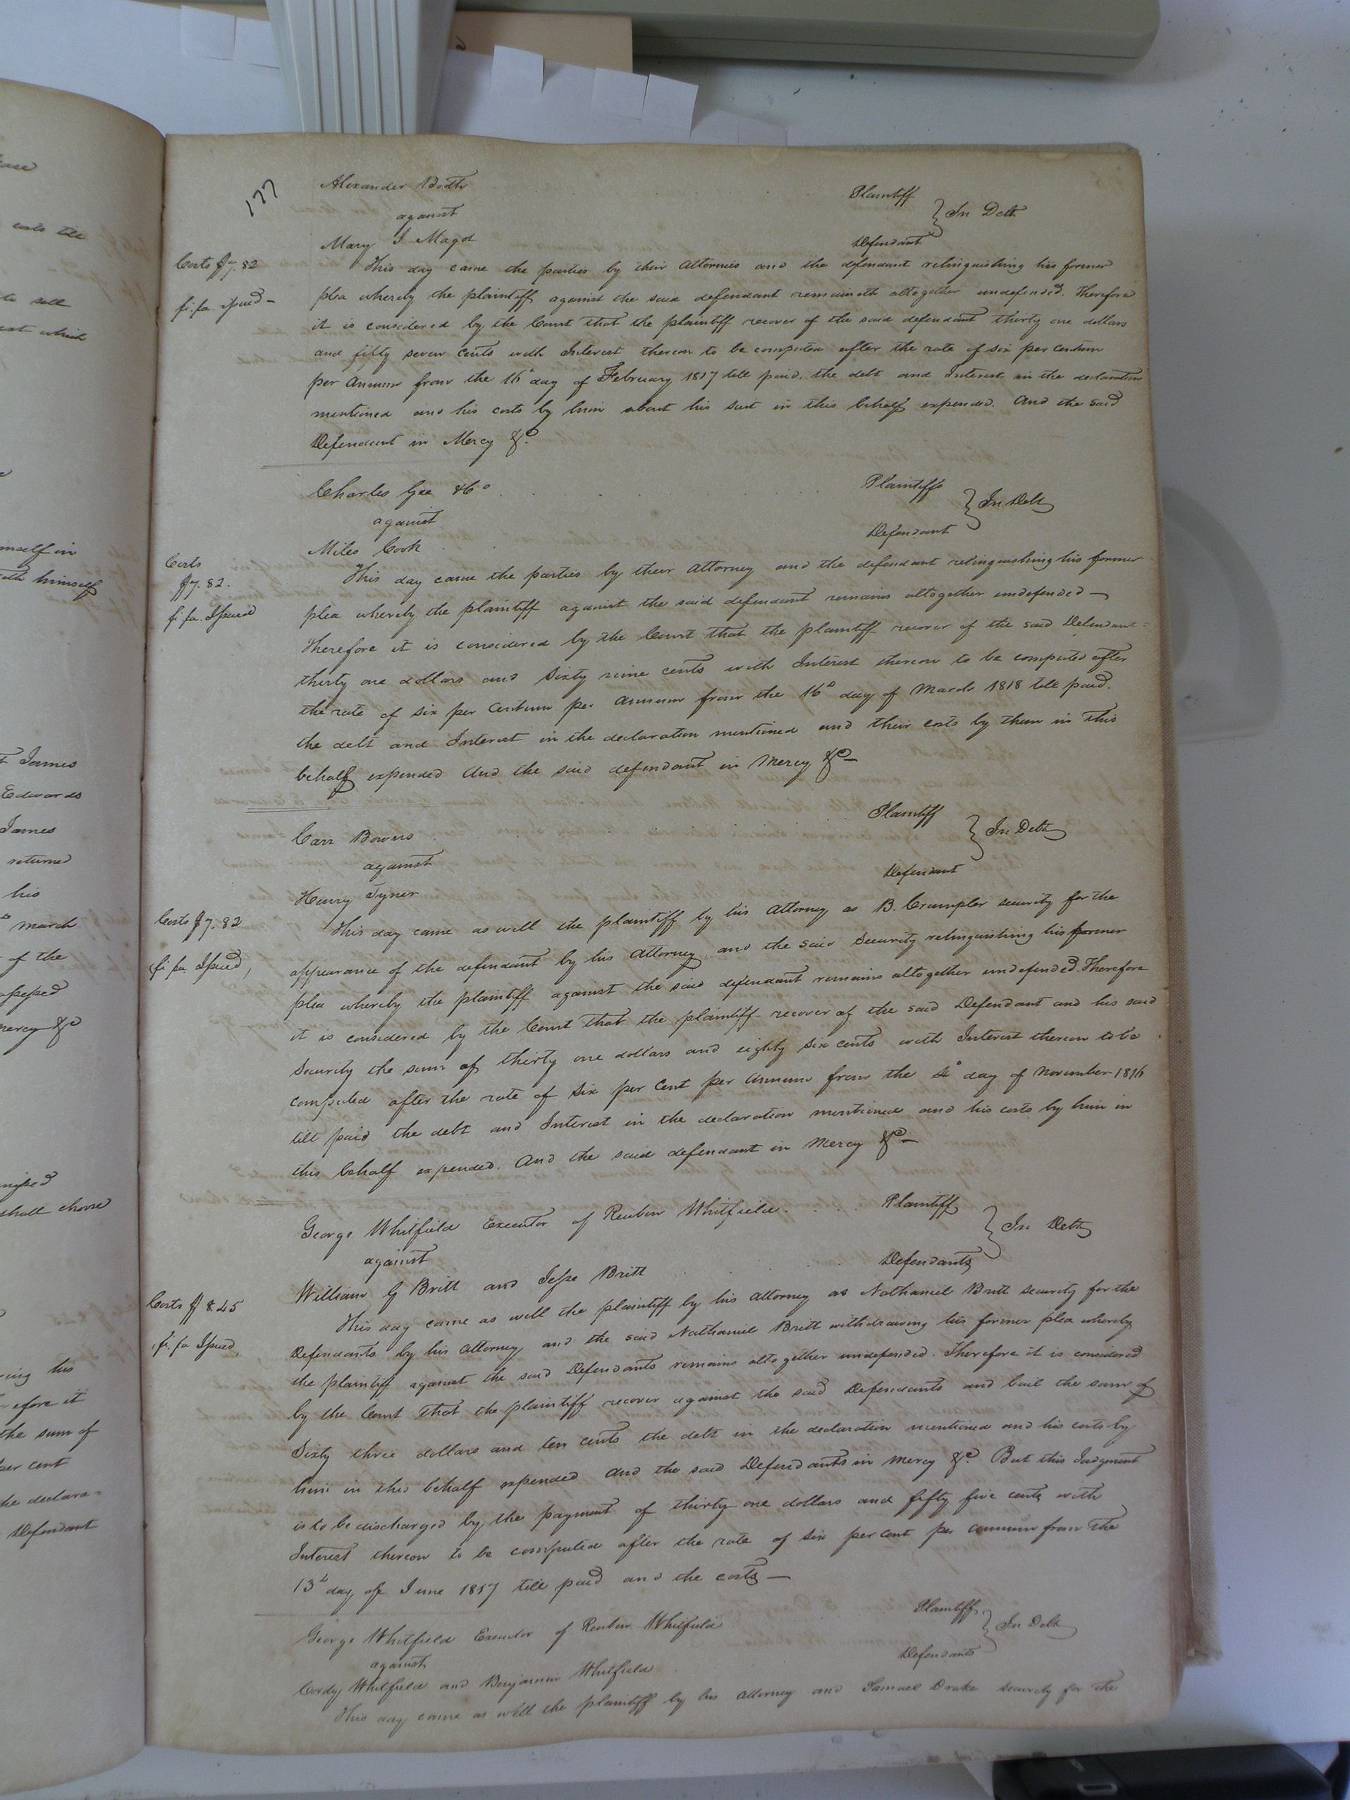 177
Alexander Booth Plaintiff
against } In Debt
Mary I Magot Defendant
Costs $7.82 This day came the parties by their Attornies and the defendant relinquishing his former
fi. fa. Issued – plea whereby the plaintiff against the said defendant remaineth altogether undefended. Therefore
it is considered by the Court that the plaintiff recover of the said defendant thirty one dollars
and fifty seven cents with Interest thereon to be computed after the rate of six per centum
per Annum from the 16th day of February 1817 till paid. the debt and Interest in the declaration
mentioned and his costs by him about his suit in this behalf expended. And the said
Defendant in Mercy &c.
Charles Gee & Co Plaintiffs
against } In Debt
Miles Cook Defendant
Costs
$7.82. This day came the parties by their Attorney and the defendant relinquishing his former
fi. fa. Issued plea whereby the plaintiff against the said defendant remains altogether undefended –
Therefore it is considered by the Court that the plaintiff recover of the said Defendant
thirty one dollars and sixty nine cents with Interest thereon to be computed after
the rate of six per Centum per Annum from the 16th day of March 1818 till paid.
the debt and Interest in the declaration mentioned and their costs by them in this
behalf expended And the said defendant in Mercy &c –
Carr Bowers Plaintiff
against } In Debt
Henry Tyner Defendant
Costs $7.82 This day came as well the plaintiff by his Attorney as B. Crumpler security for the
fi. fa. Issued, appearance of the defendant by his Attorney, and the said Security relinquishing his former
plea whereby the plaintiff against the said defendant remains altogether undefended. Therefore
it is considered by the Court that the plaintiff recover of the said Defendant and his said
Security the sum of thirty one dollars and eighty six cents with Interest thereon to be
computed after the rate of six per Cent per Annum from the day of November 1816
till paid the debt and Interest in the declaration mentioned and his costs by him in
this behalf expended. And the said defendant in Mercy &c –
George Whitfield Executor of Reuben Whitfield. Plaintiff
against } In Debt
William G Britt and Jesse Britt Defendants
Costs $8.45 This day came as well the plaintiff by his Attorney as Nathaniel Britt security for the
fi. fa. Issued, Defendants by his Attorney and the said Nathaniel Britt withdrawing his former plea whereby
the plaintiff against the said Defendants remains altogether undefended. Therefore it is considered
by the Court that the plaintiff recover against the said Defendants and bail the sum of
Sixty three dollars and ten cents the debt in the declaration mentioned and his costs by
him in this behalf expended and the said Defendants in mercy &c. But this Judgment
is to be discharged by the payment of thirty one dollars and fifty five cents with
Interest thereon to be computed after the rate of six per cent per annum from the
13th day of June 1817 till paid and the costs –
George Whitfield Executor of Reuben Whitfield Plaintiff
against } In Debt
Cordy Whitfield and Benjamin Whitfield Defendants
This day came as well the plaintiff by his Attorney and Samuel Drake security for the